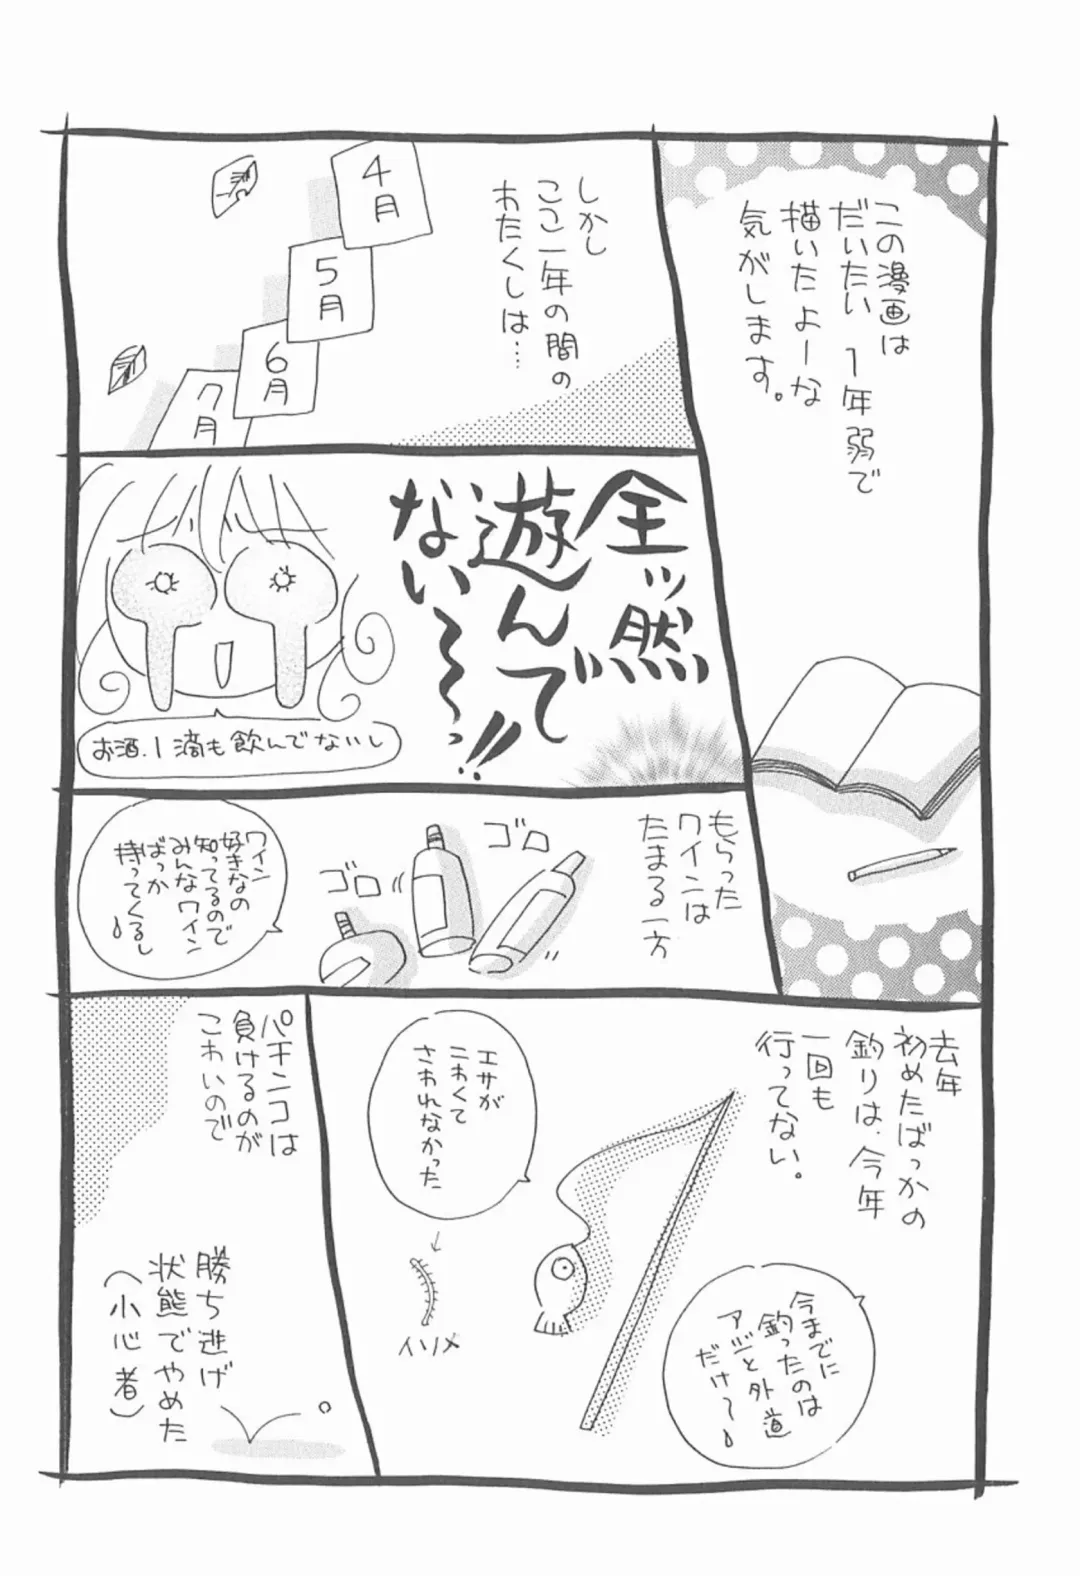 この漫画は
だいたい1年弱で
描いたよーな
気がします。
しかし
ここ一年の間の
わたくしは…
4月
5月
6月
7月
全ッ然
遊んで
ない～～っ!!
お酒、1滴も飲んでないし
もらった
ワインは
たまる一方
ゴロ
ゴロ
ワイン
好きなの
知ってるので
みんなワイン
ばっか
持ってくるし
去年
初めたばっかの
釣りは、今年
一回も
行ってない。
エサが
こわくて
さわれなかった
イソメ
今までに
釣ったのは
アジと外道
だけ～
パチンコは
負けるのが
こわいので
勝ち逃げ
状態でやめた
(小心者)